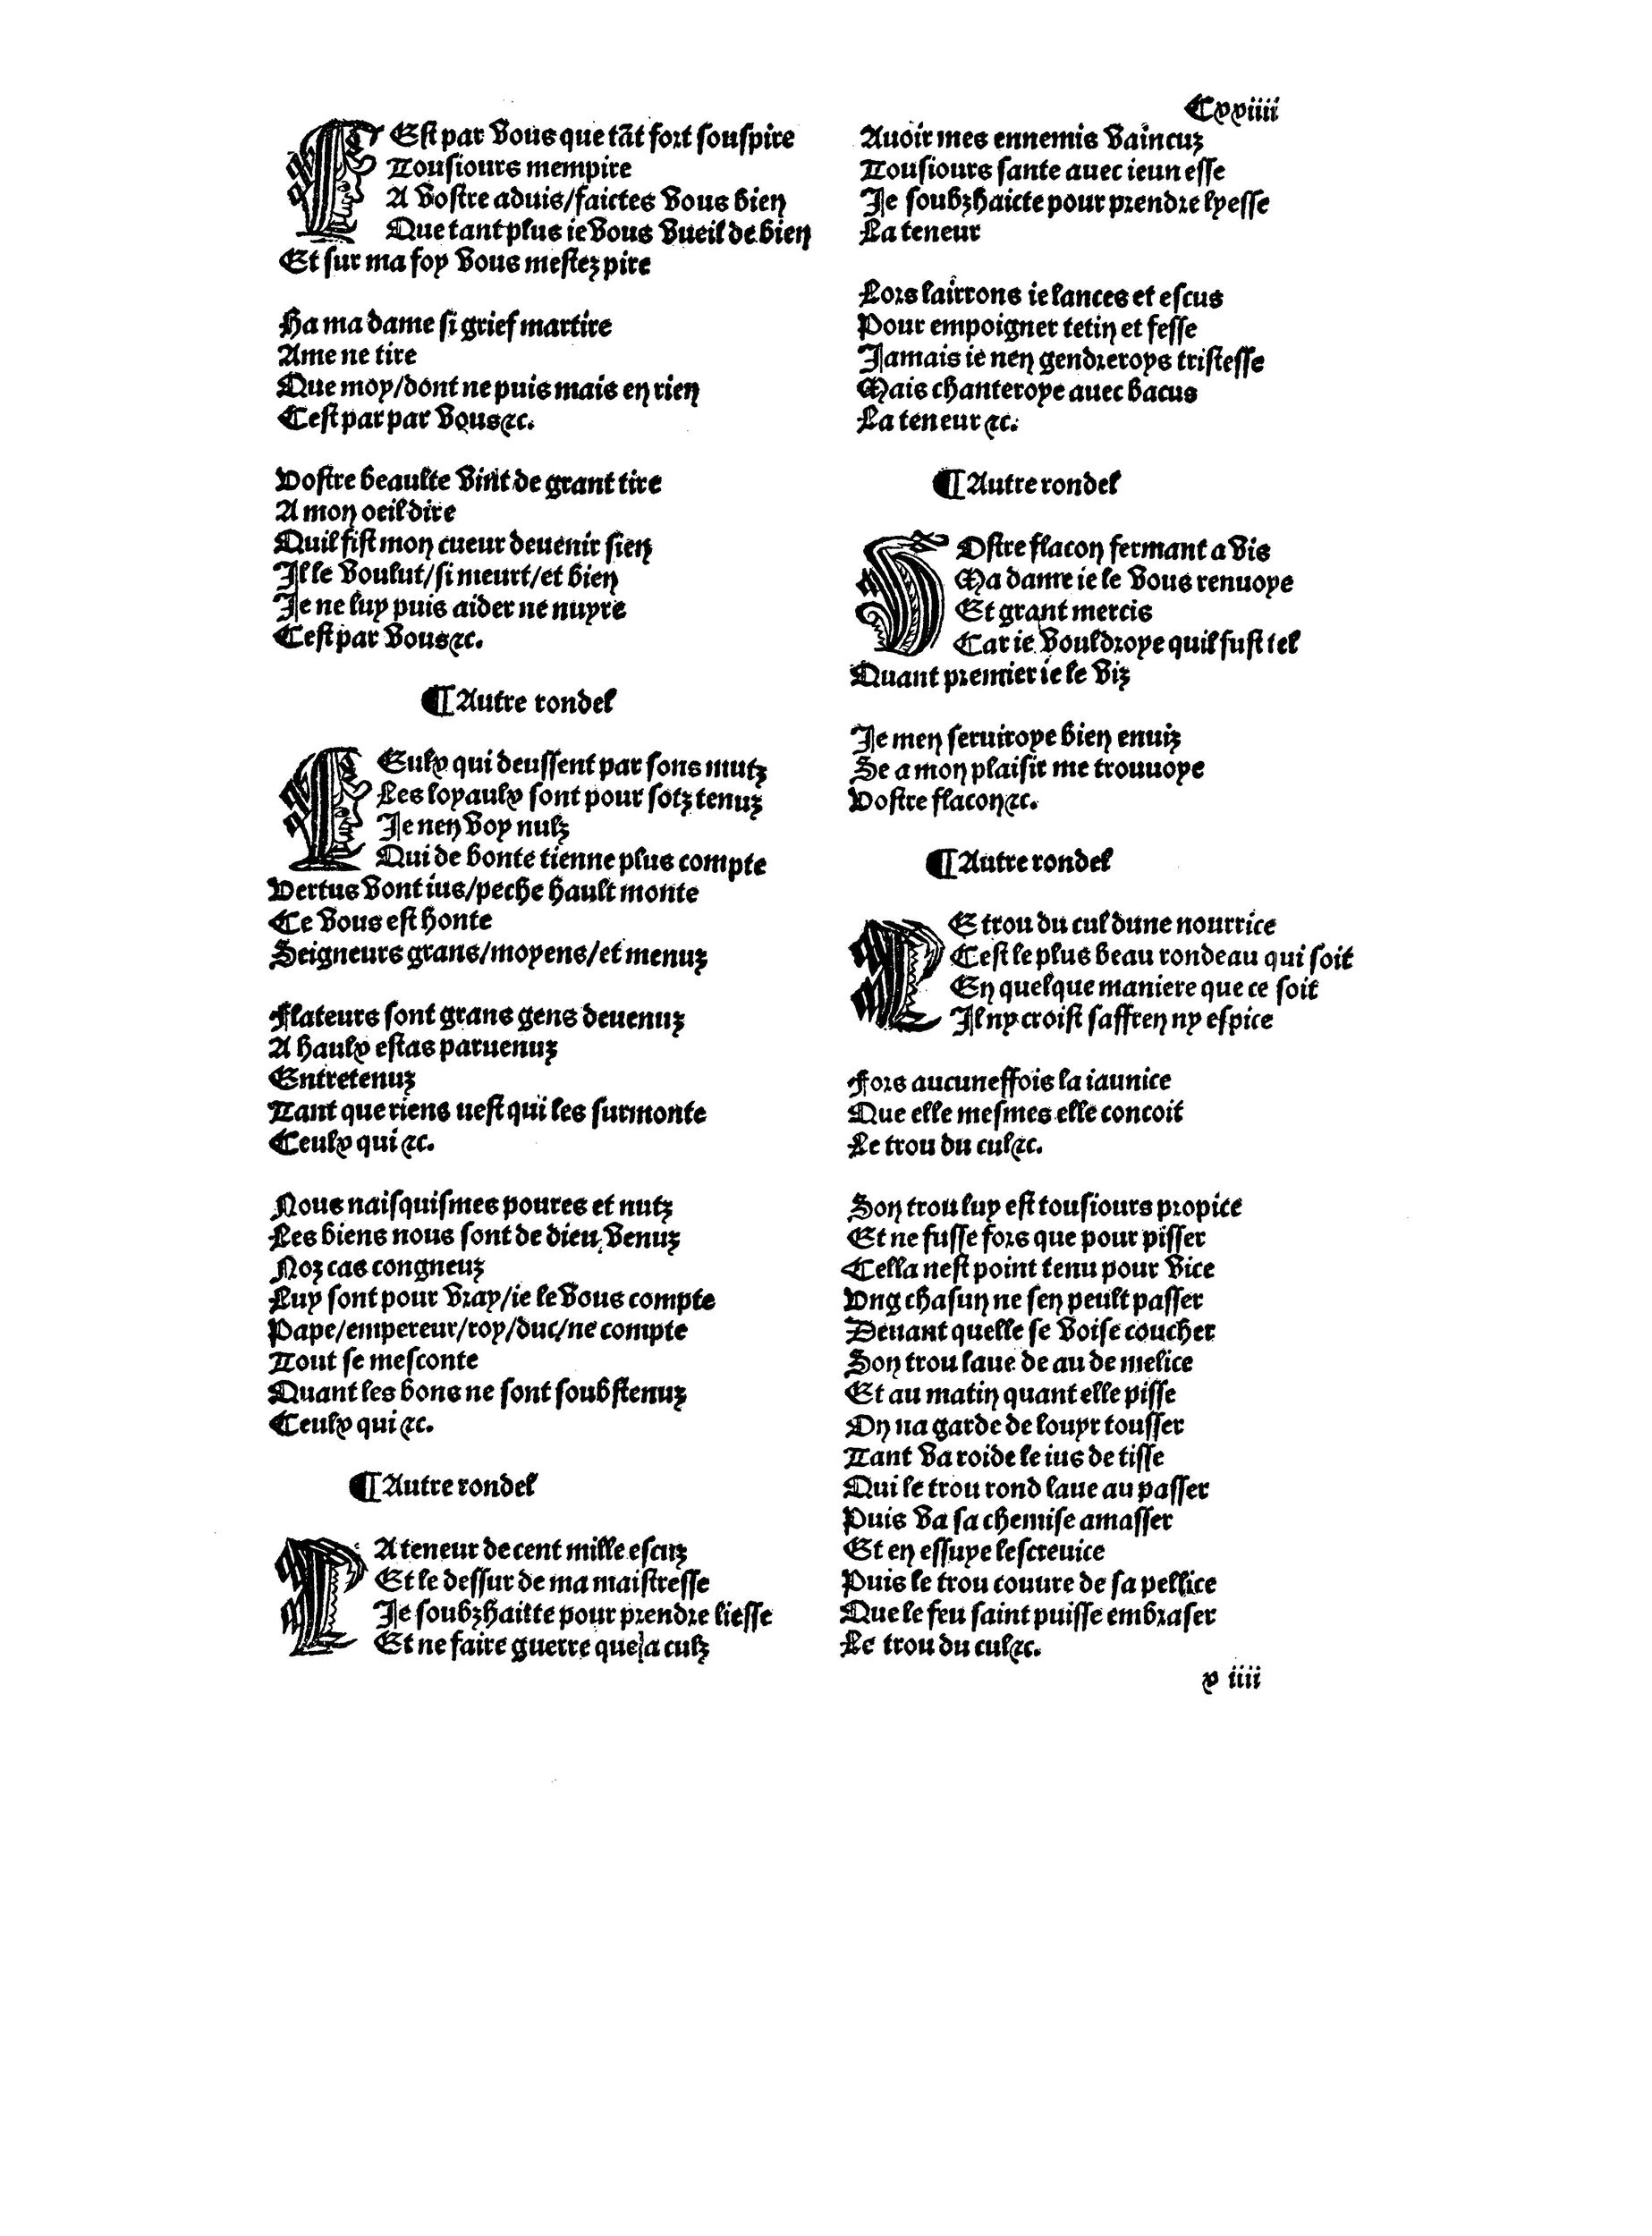 Cxxiiii
CEst par vous que tãt fort souspire
Tousiours mempire
A vostre aduis/faictes vous bien
Que tant plus ie vous vueil de bien
Et sur ma foy vous mestez pire

Ha ma dame si grief martire
Ame ne tire
Que moy/dont ne puis mais en rien
Cest par par vous &c.

Vostre beaulte vint de grant tire
A mon oeil dire
Quil fist mon cueur deuenir sien
Il le voulut/si meurt/et bien
Je ne luy puis aider ne nuyre
Cest par vous &c.

¶ Autre rondel

CEulx qui deussent par sons mutz
Les loyaulx sont pour sotz tenuz
Je nen voy nulz
Qui de bonte tienne plus compte
Vertus vont ius/peche hault monte
Ce vous est honte
Seigneurs grans/moyens/et menuz

Flateurs sont grans gens deuenuz
A haulx estas paruenuz
Entretenuz
Tant que riens uest qui les surmonte
Ceulx qui &c.

Nous naisquismes poures et nutz
Les biens nous sont de dieu venuz
Noz cas congneuz
Luy sont pour vray/ie le vous compte
Pape/empereur/roy/duc/ne compte
Tout se mesconte
Quant les bons ne sont soubstenuz
Ceulx qui &c.

¶ Autre rondel

LA teneur de cent mille escuz
Et le dessur de ma maistresse
Je soubzhaitte pour prendre liesse
Et ne faire guerre que a culz
Auoir mes ennemis vaincuz
Tousiours sante auec ieunesse
Je soubzhaicte pour prendre lyesse
La teneur

Lors lairrons ie lances et escus
Pour empoigner tetin et fesse
Jamais ie nen gendreroys tristesse
Mais chanteroye auec bacus
La teneur &c.

¶ Autre rondel

VOstre flacon fermant a vis
Ma dame ie le vous renuoye
Et grant mercis
Car ie vouldroye quil fust tel
Quant premier ie le viz

Je men seruiroye bien enuiz
Se a mon plaisir me trouuoye
Vostre flacon &c.

¶ Autre rondel

LE trou du cul dune nourrice
Cest le plus beau rondeau qui soit
En quelque maniere que ce soit
Il ny croist saffren ny espice

Fors aucuneffois la iaunice
Que elle mesmes elle concoit
Le trou du cul &c.

Son trou luy est tousiours propice
Et ne fusse fors que pour pisser
Cella nest point tenu pour vice
Vng chasun ne sen peult passer
Deuant quelle se voise coucher
Son trou laue de au de melice
Et au matin quant elle pisse
On na garde de louyr tousser
Tant va roide le ius de tisse
Qui le trou rond laue au passer
Puis va sa chemise amasser
Et en essuye lescreuice
Puis le trou couure de sa pellice
Que le feu saint puisse embraser
Le trou du cul &c.
x iiii